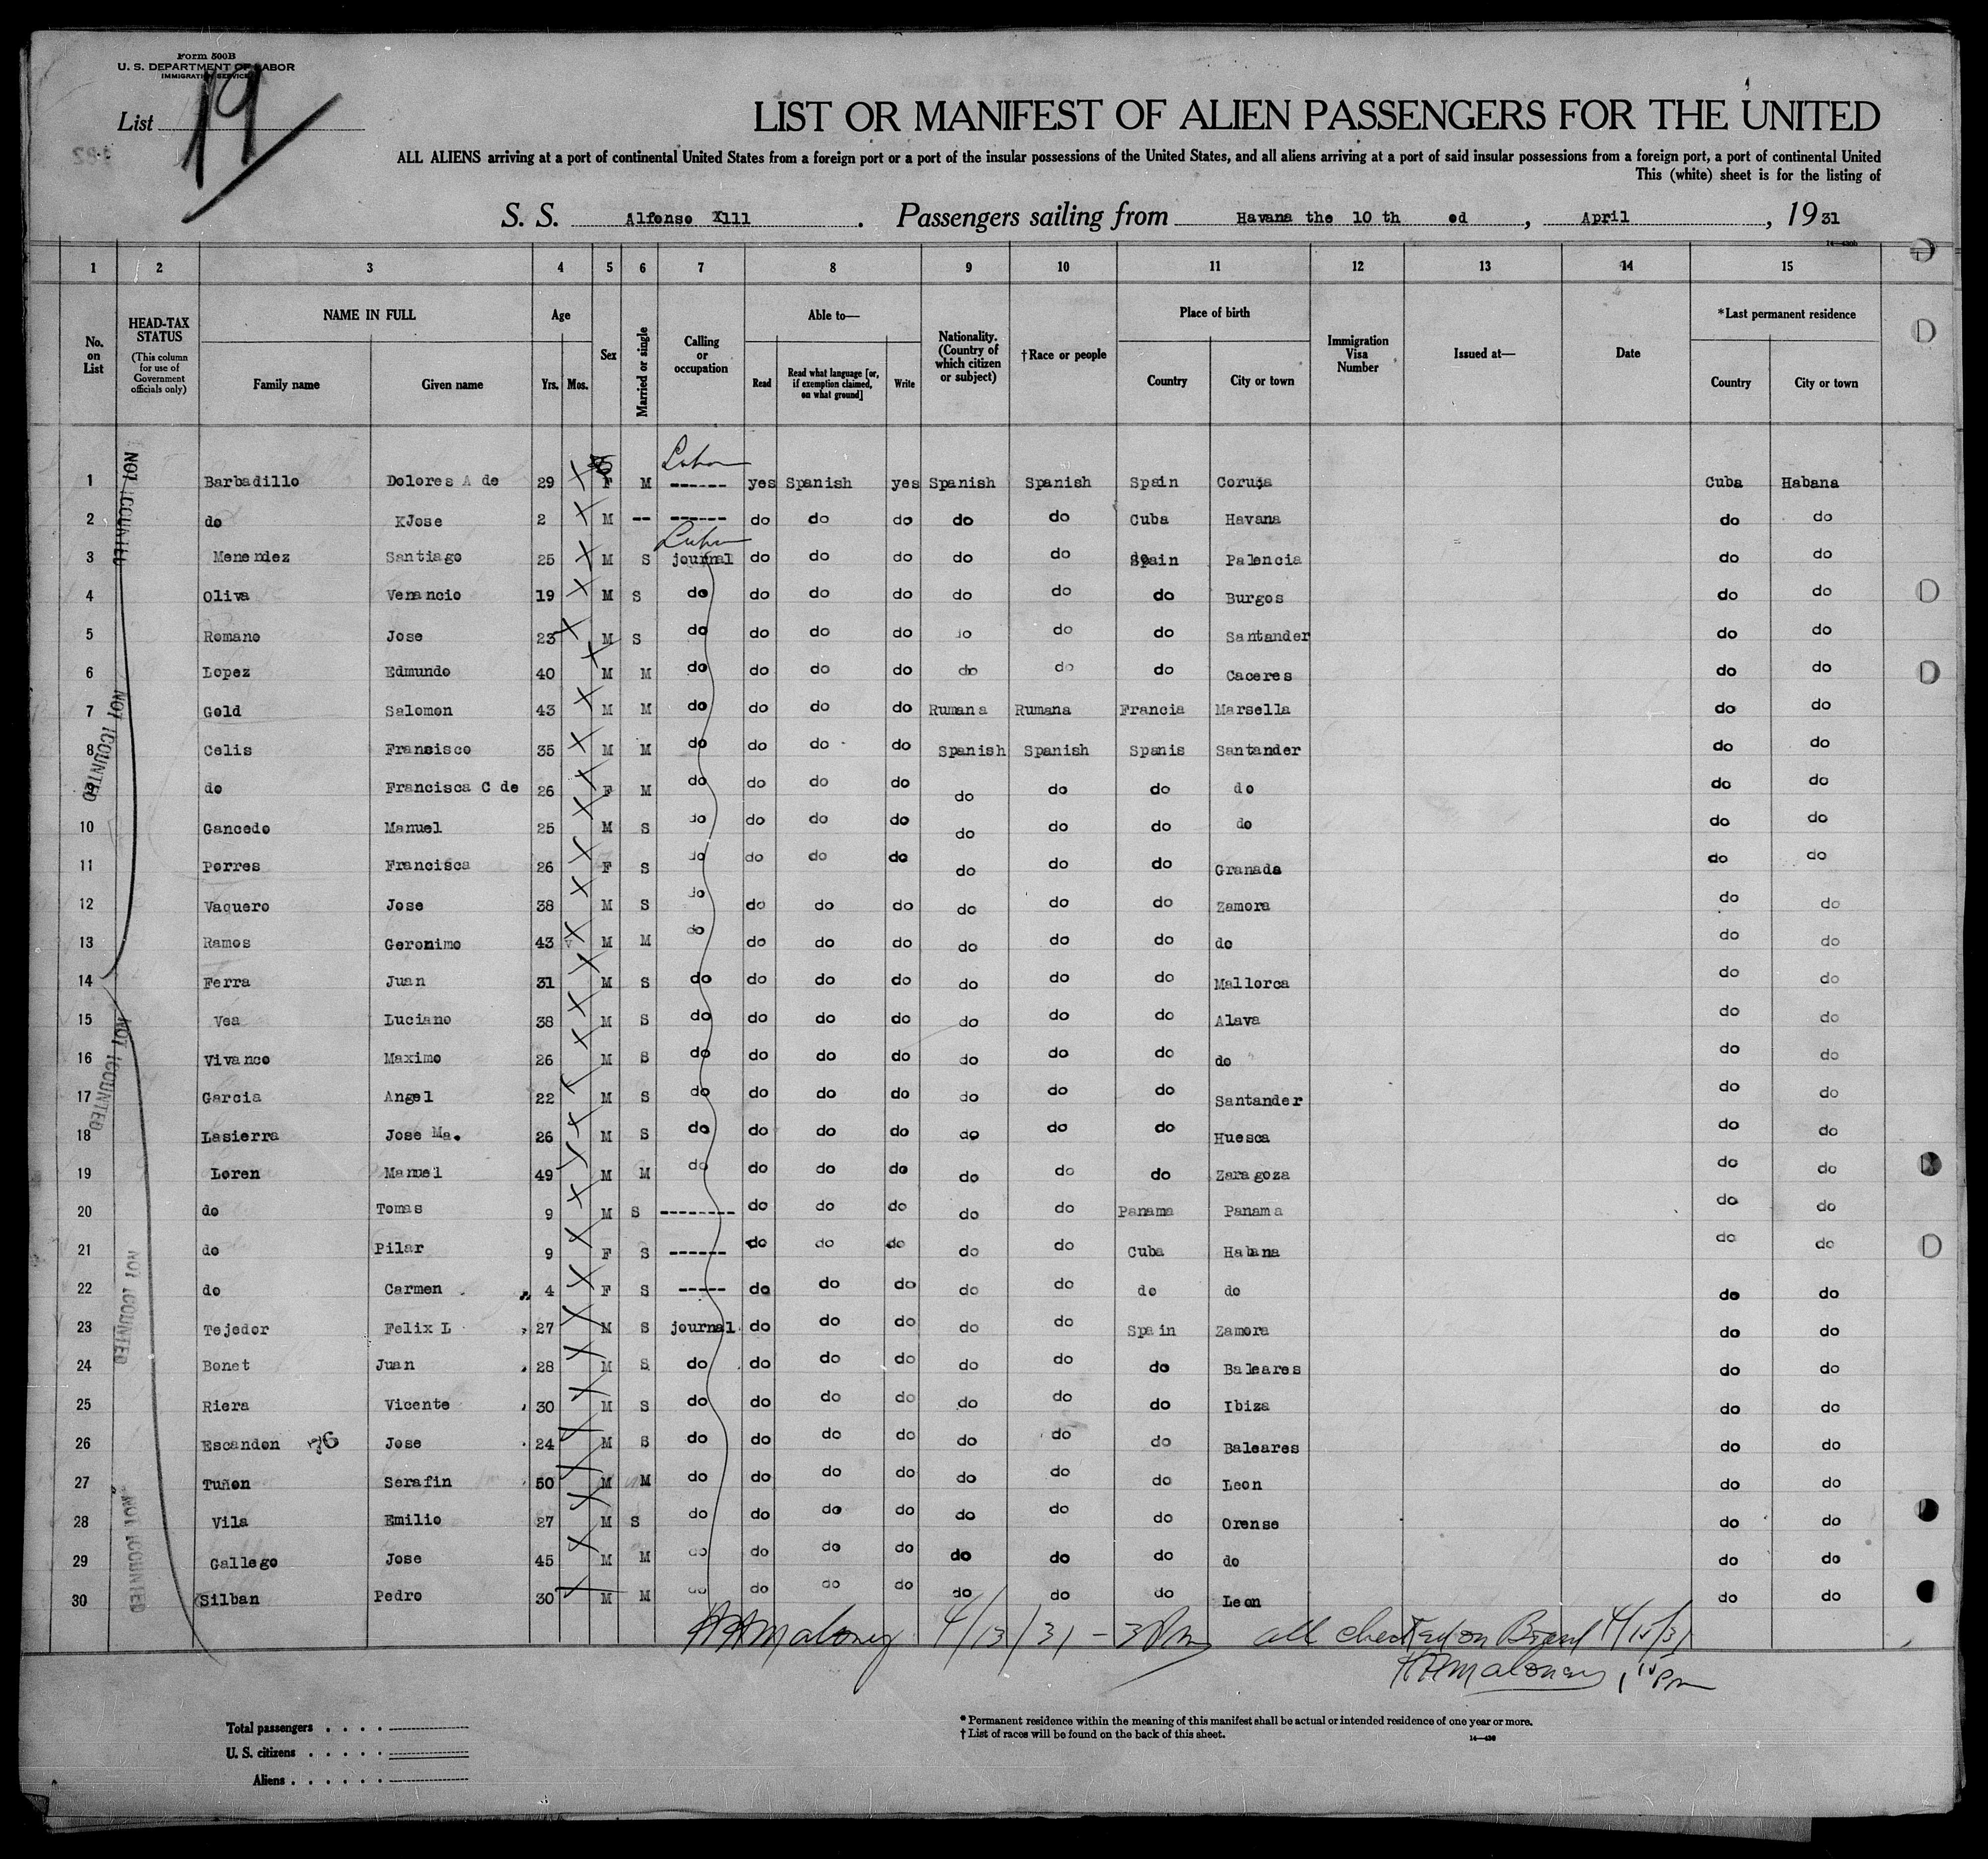 Form 500B
U. S. DEPARTMENT OF LABOR
IMMIGRATION SERVICE
List 19
LIST OR MANIFEST OF ALIEN PASSENGERS FOR THE UNITED
ALL ALIENS arriving at a port of continental United States from a foreign port or a port of the insular possessions of the United States, and all aliens arriving at a port of said insular possessions from a foreign port, a port of continental United
This (white) sheet is for the listing of
S. S. Alfonso X111 . Passengers sailing from Havana the 10 th ed , April , 19 31
1 2 3 4 5 6 7 8 9 10 11 12 13 14 15
No. on List
HEAD-TAX STATUS (This column for use of Government officials only)
NAME IN FULL Family name Given name
Age Yrs. Mos.
Sex
Married or single
Calling or occupation
Able to— Read Read what language [or, if exemption claimed, on what ground] Write
Nationality. (Country of which citizen or subject)
†Race or people
Place of birth Country City or town
Immigration Visa Number
Issued at—
Date
*Last permanent residence Country City or town
1 Barbadillo Dolores A de 29 F M ------ yes Spanish yes Spanish Spanish Spain Coruña Cuba Habana
2 do KJose 2 M -- ------ do do do do do Cuba Havana do do
3 Menendez Santiago 25 M S journal do do do do do Spain Palencia do do
4 Oliva Venancio 19 M S do do do do do do do Burgos do do
5 Romano Jose 23 M S do do do do do do do Santander do do
6 Lopez Edmundo 40 M M do do do do do do do Caceres do do
7 Gold Salomon 43 M M do do do do Rumana Rumana Francia Marsella do do
8 Celis Fransisco 35 M M do do do do Spanish Spanish Spanis Santander do do
9 do Francisca C de 26 F M do do do do do do do do do do
10 Gancedo Manuel 25 M S do do do do do do do do do do
11 Porres Francisca 26 F S do do do do do do do Granada do do
12 Vaquero Jose 38 M S do do do do do do do Zamora do do
13 Ramos Geronimo 43 M M do do do do do do do do do do
14 Ferra Juan 31 M S do do do do do do do Mallorca do do
15 Vea Luciano 38 M S do do do do do do do Alava do do
16 Vivanco Maximo 26 M S do do do do do do do do do do
17 Garcia Angel 22 M S do do do do do do do Santander do do
18 Lasierra Jose Ma. 26 M S do do do do do do do Huesca do do
19 Loren Manuel 49 M M do do do do do do do Zaragoza do do
20 do Tomas 9 M S -------- do do do do do Panama Panama do do
21 do Pilar 9 F S ------ do do do do do Cuba Habana do do
22 do Carmen 4 F S ----- do do do do do do do do do
23 Tejedor Felix L 27 M S journal do do do do do Spain Zamora do do
24 Bonet Juan 28 M S do do do do do do do Baleares do do
25 Riera Vicente 30 M S do do do do do do do Ibiza do do
26 Escandon 76 Jose 24 M S do do do do do do do Baleares do do
27 Tuñon Serafin 50 M M do do do do do do do Leon do do
28 Vila Emilio 27 M S do do do do do do do Orense do do
29 Gallego Jose 45 M M do do do do do do do do do do
30 Silban Pedro 30 M M do do do do do do do Leon do do
NOT ACCOUNTED
NOT ACCOUNTED
NOT ACCOUNTED
NOT ACCOUNTED
NOT ACCOUNTED
Maloney 4/13/31 - 3 Pm all checked on Board 4/15/31
Maloney, 1 10 Pm
Total passengers
U. S. citizens
Aliens
* Permanent residence within the meaning of this manifest shall be actual or intended residence of one year or more.
† List of races will be found on the back of this sheet.